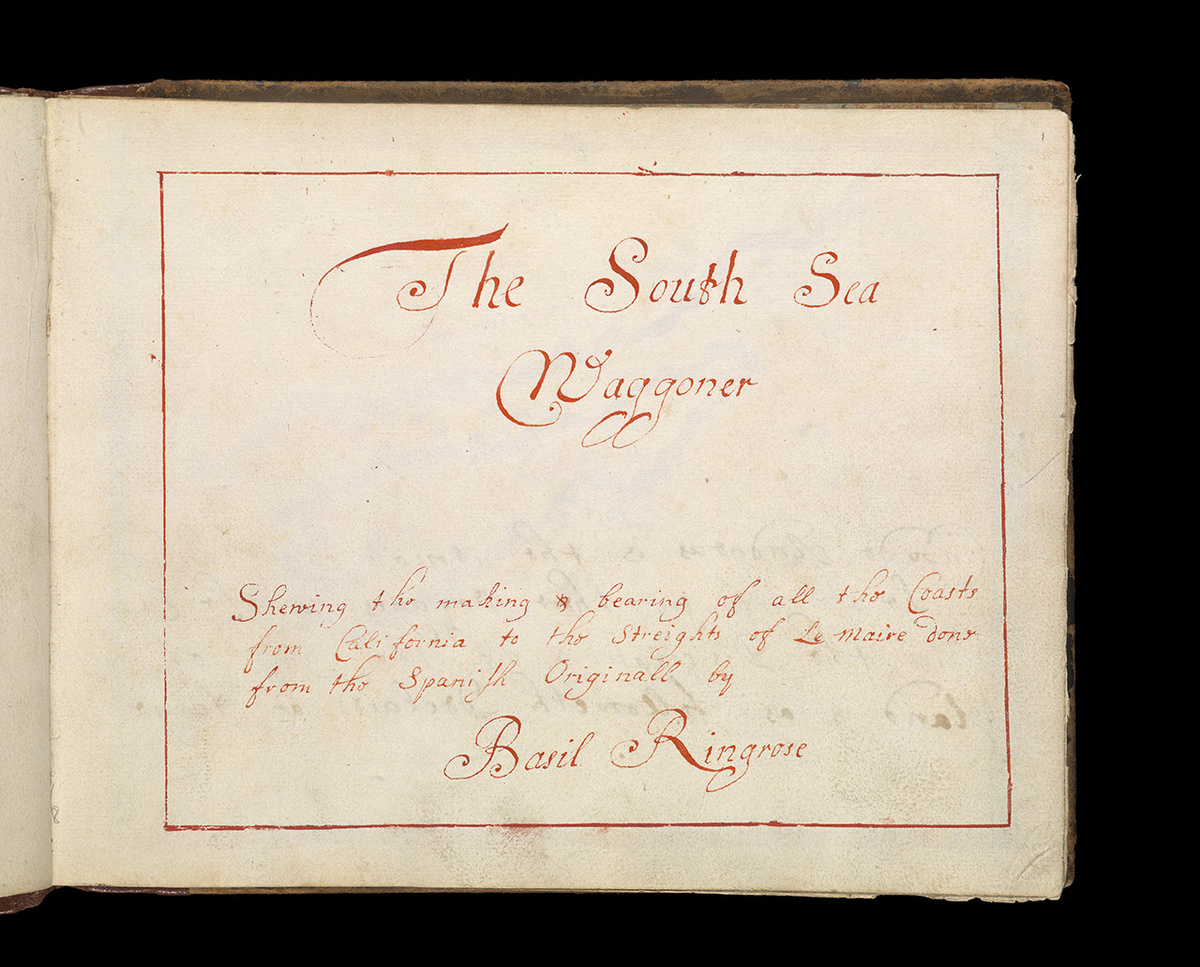 The South Sea
Waggoner
Shewing the making & bearing of all the Coasts
from California to the Streights of Le Maire done
from the Spanish Originall by
Basil Ringrose